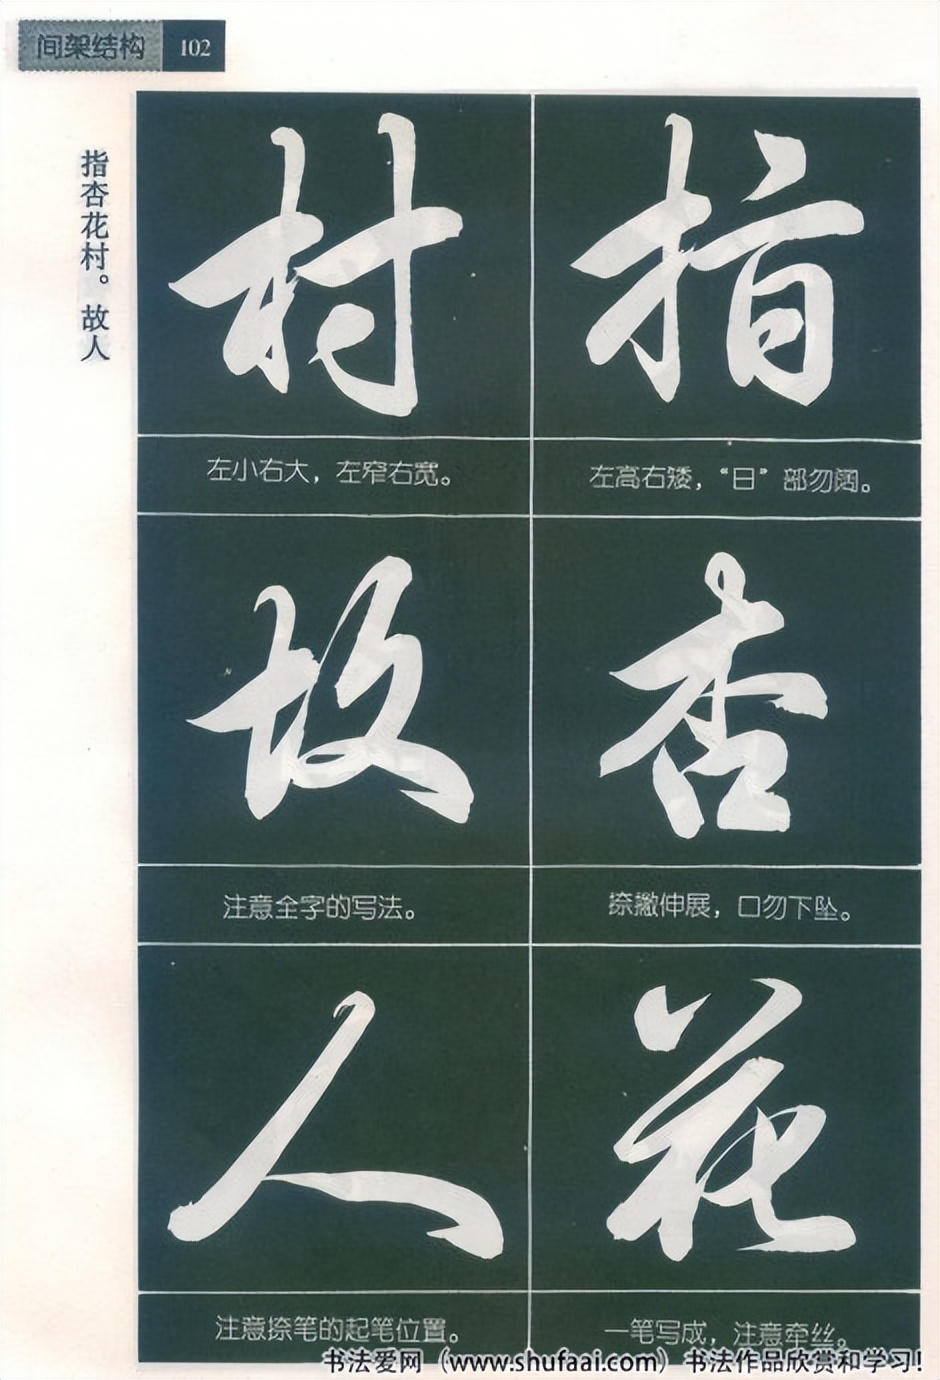 间架结构 102
指杏花村。故人
指
左高右矮，“日”部勿阔。
杏
捺撇伸展，口勿下坠。
花
一笔写成，注意牵丝。
村
左小右大，左窄右宽。
故
注意全字的写法。
人
注意捺笔的起笔位置。
书法爱网（www.shufaai.com）书法作品欣赏和学习！